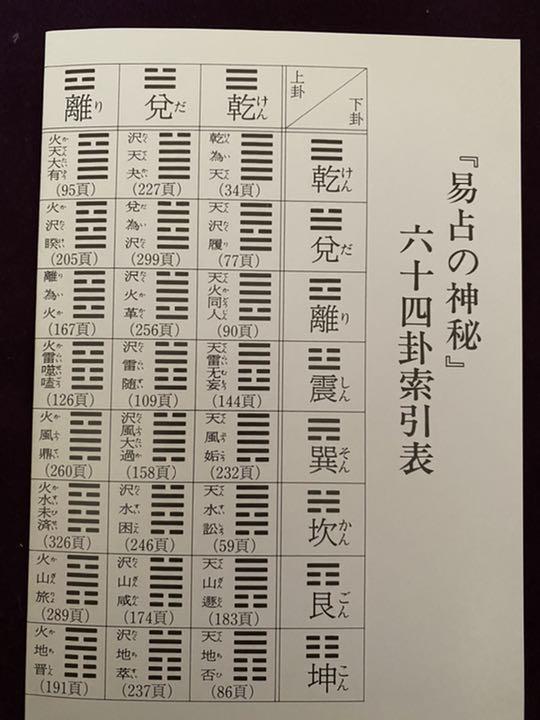 『易占の神秘』
六十四卦索引表
上卦
下卦
乾けん
兌だ
離り
乾けん
乾為天
(34頁)
沢天夬
(227頁)
火天大有
(95頁)
兌だ
天沢履
(77頁)
兌為沢
(299頁)
火沢睽
(205頁)
離り
天火同人
(90頁)
沢火革
(256頁)
離為火
(167頁)
震しん
天雷无妄
(144頁)
沢雷随
(109頁)
火雷噬嗑
(126頁)
巽そん
天風姤
(232頁)
沢風大過
(158頁)
火風鼎
(260頁)
坎かん
天水訟
(59頁)
沢水困
(246頁)
火水未済
(326頁)
艮ごん
天山遯
(183頁)
沢山咸
(174頁)
火山旅
(289頁)
坤こん
天地否
(86頁)
沢地萃
(237頁)
火地晋
(191頁)